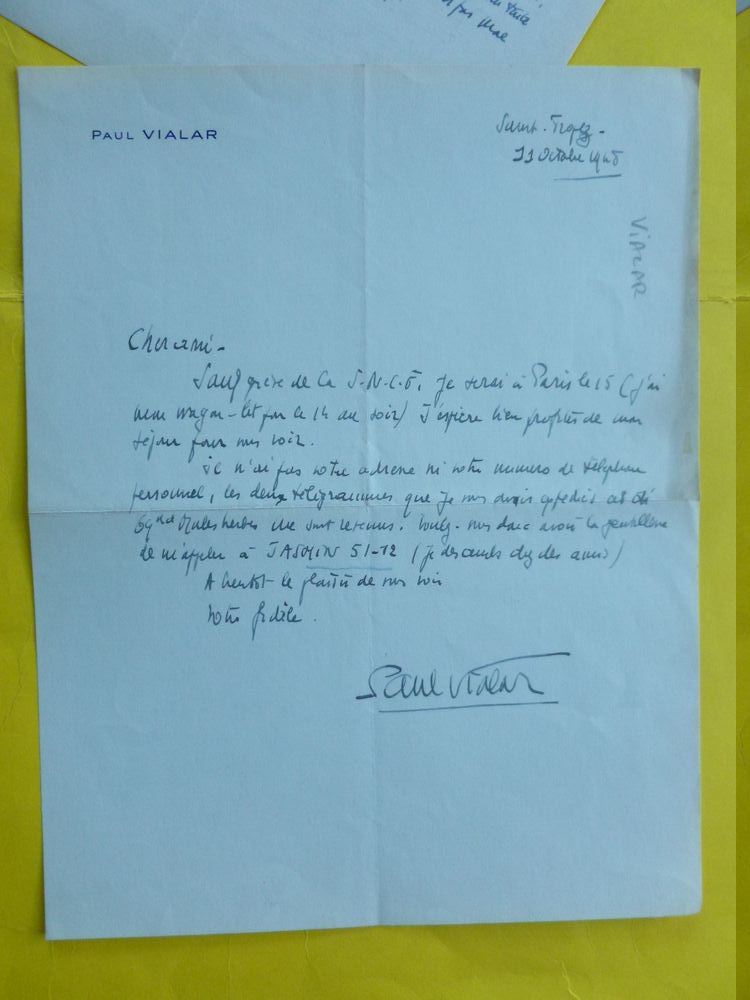 PAUL VIALAR
Saint-Tropez -
11 Octobre 1948
VIALAR
Cher ami -
Sauf grève de la S.N.C.F., je serai à Paris le 15 (j'ai
mon wagon-lit pour le 14 au soir) J'espère bien profiter de mon
séjour pour vous voir.
Je n'ai pas votre adresse ni votre numero de téléphone
personnel, les deux télégrammes que je vous avais expédié
Bd Malesherbes me sont revenus. Voulez-vous donc avoir la gentillesse
de m'appeler à JASMIN 51-12 (je descends chez des amis)
A bientôt le plaisir de vous voir
Votre fidèle.
Paul Vialar
pas mal